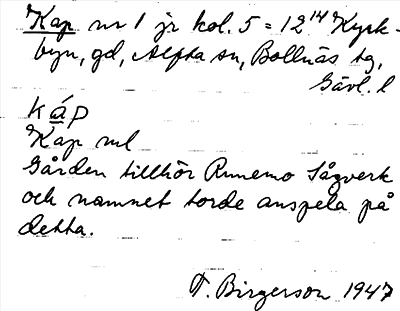 Kap nr 1 jr kol. 5 = 12¹⁴ Kyrk-
byn, gd, Alfta sn, Bollnäs tg,
Gävl. l
káp
Kap ml
Gården tillhör Runemo Sågverk
och namnet torde anspela på
detta.
T. Birgerson 1947